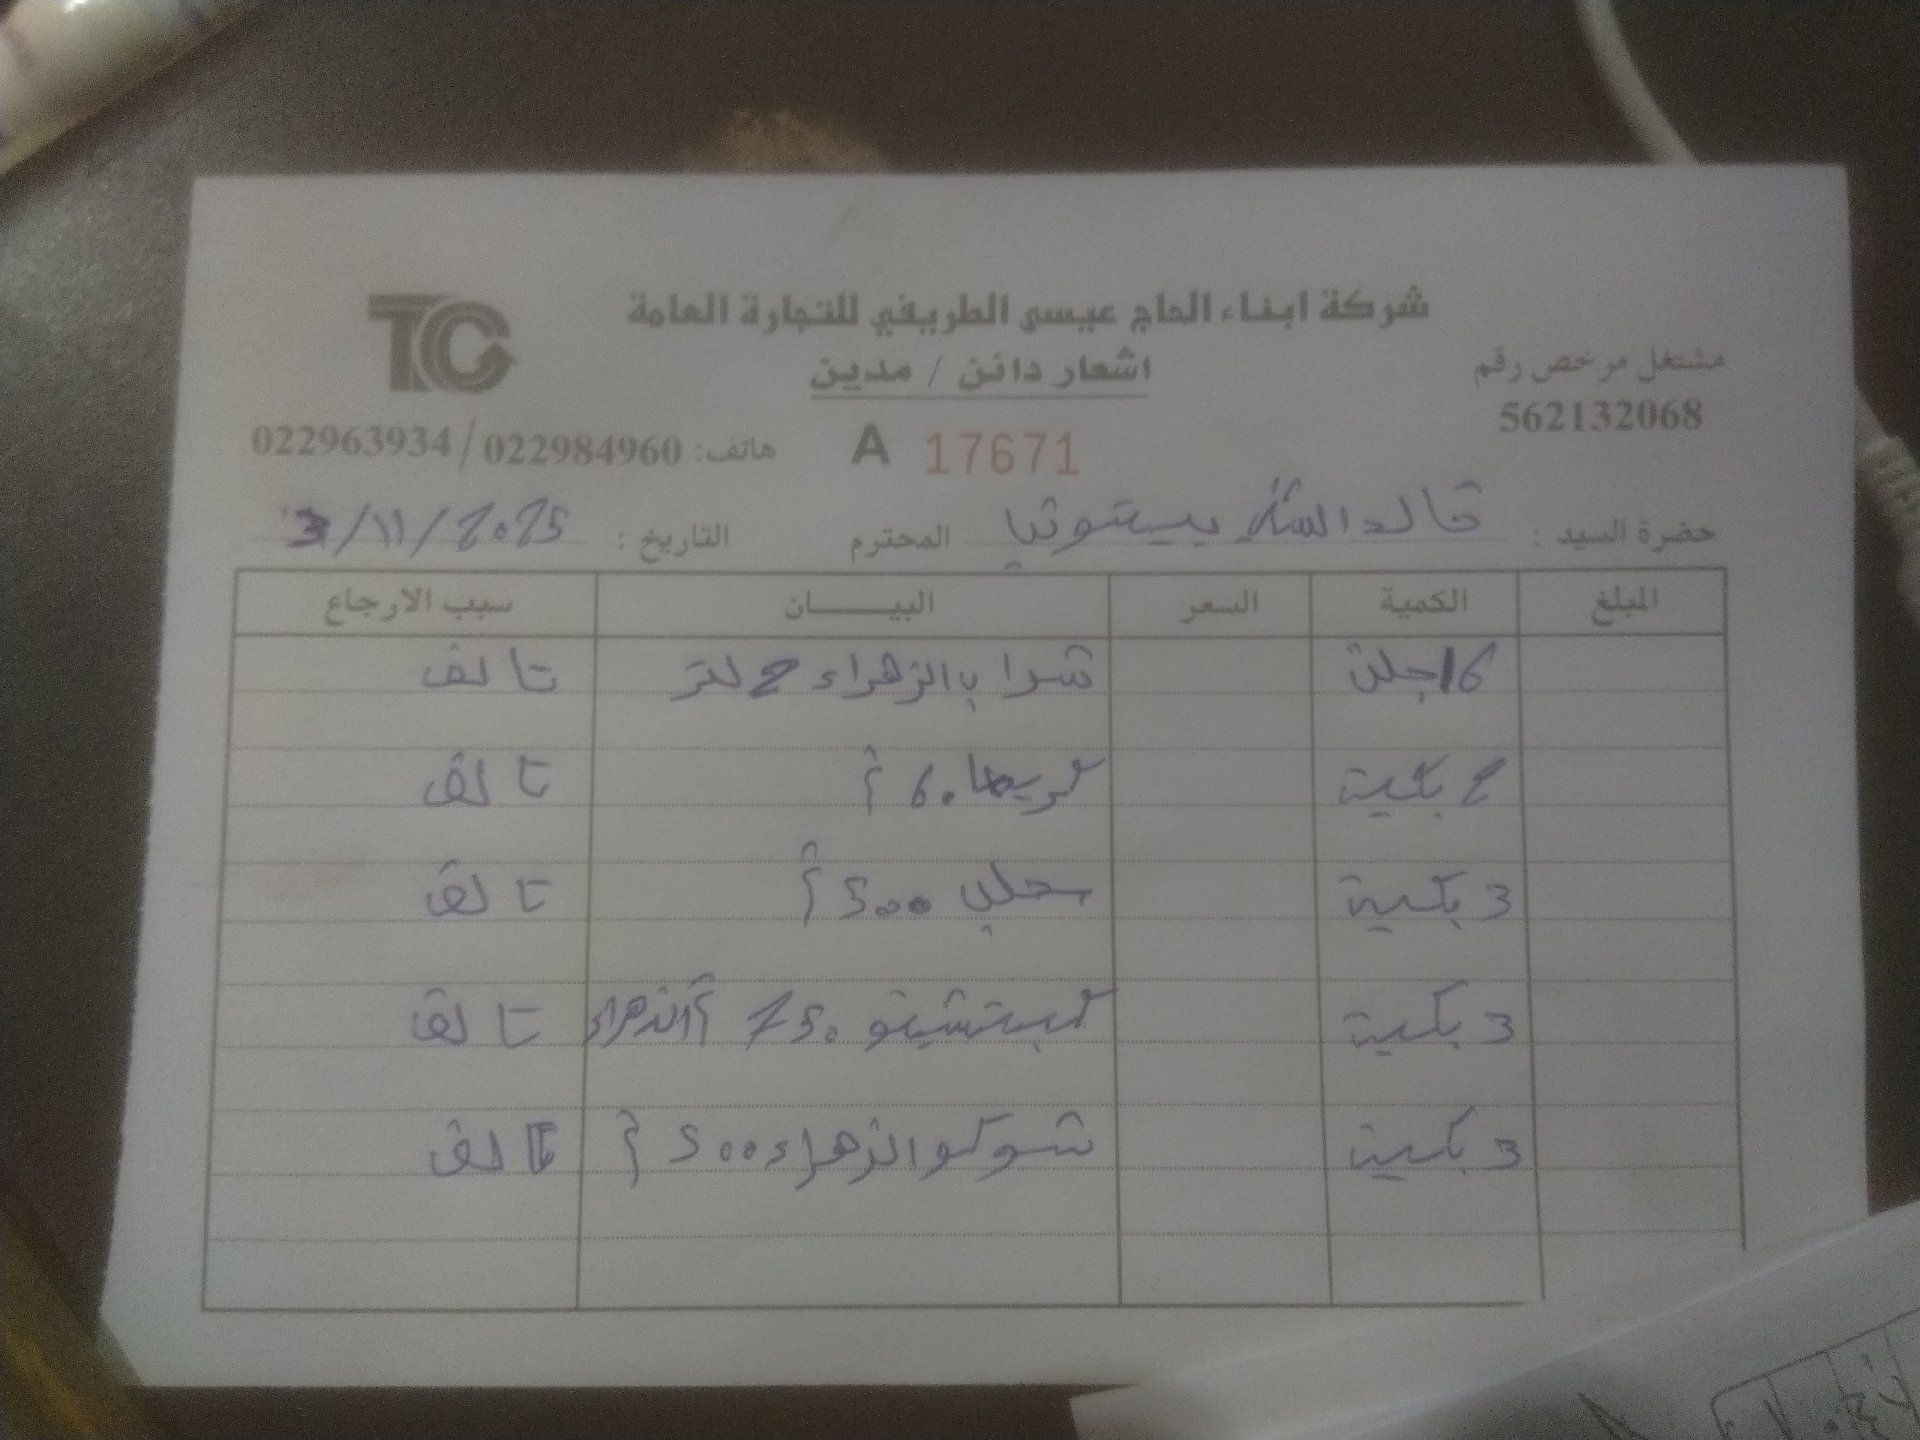 شركة ابناء الحاج عيسى الطريفي للتجارة العامة
TC
اشعار دائن / مدين
مشتغل مرخص رقم
562132068
هاتف: 022984960 / 022963934
A 17671
حضرة السيد : خالد المحترم
التاريخ : 3/11/2025
المبلغ الكمية السعر البيــــــان سبب الارجاع
16 جلن شراب الزهراء 2 لتر تالف
2 بكيت 60 غ تالف
3 بكيت 500 غ تالف
3 بكيت 250 غ الزهراء تالف
3 بكيت شوكو الزهراء 500 غ تالف